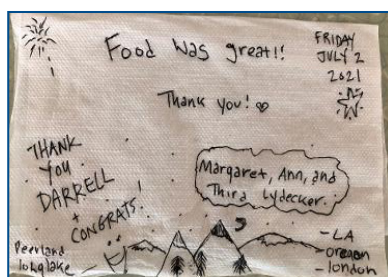 Food was great!!
FRIDAY
JULY 2
2021
Thank you!
THANK
YOU
DARRELL
+
CONGRATS!
Margaret, Ann, and
Third Lydecker.
- LA
- oregon
london
longlake